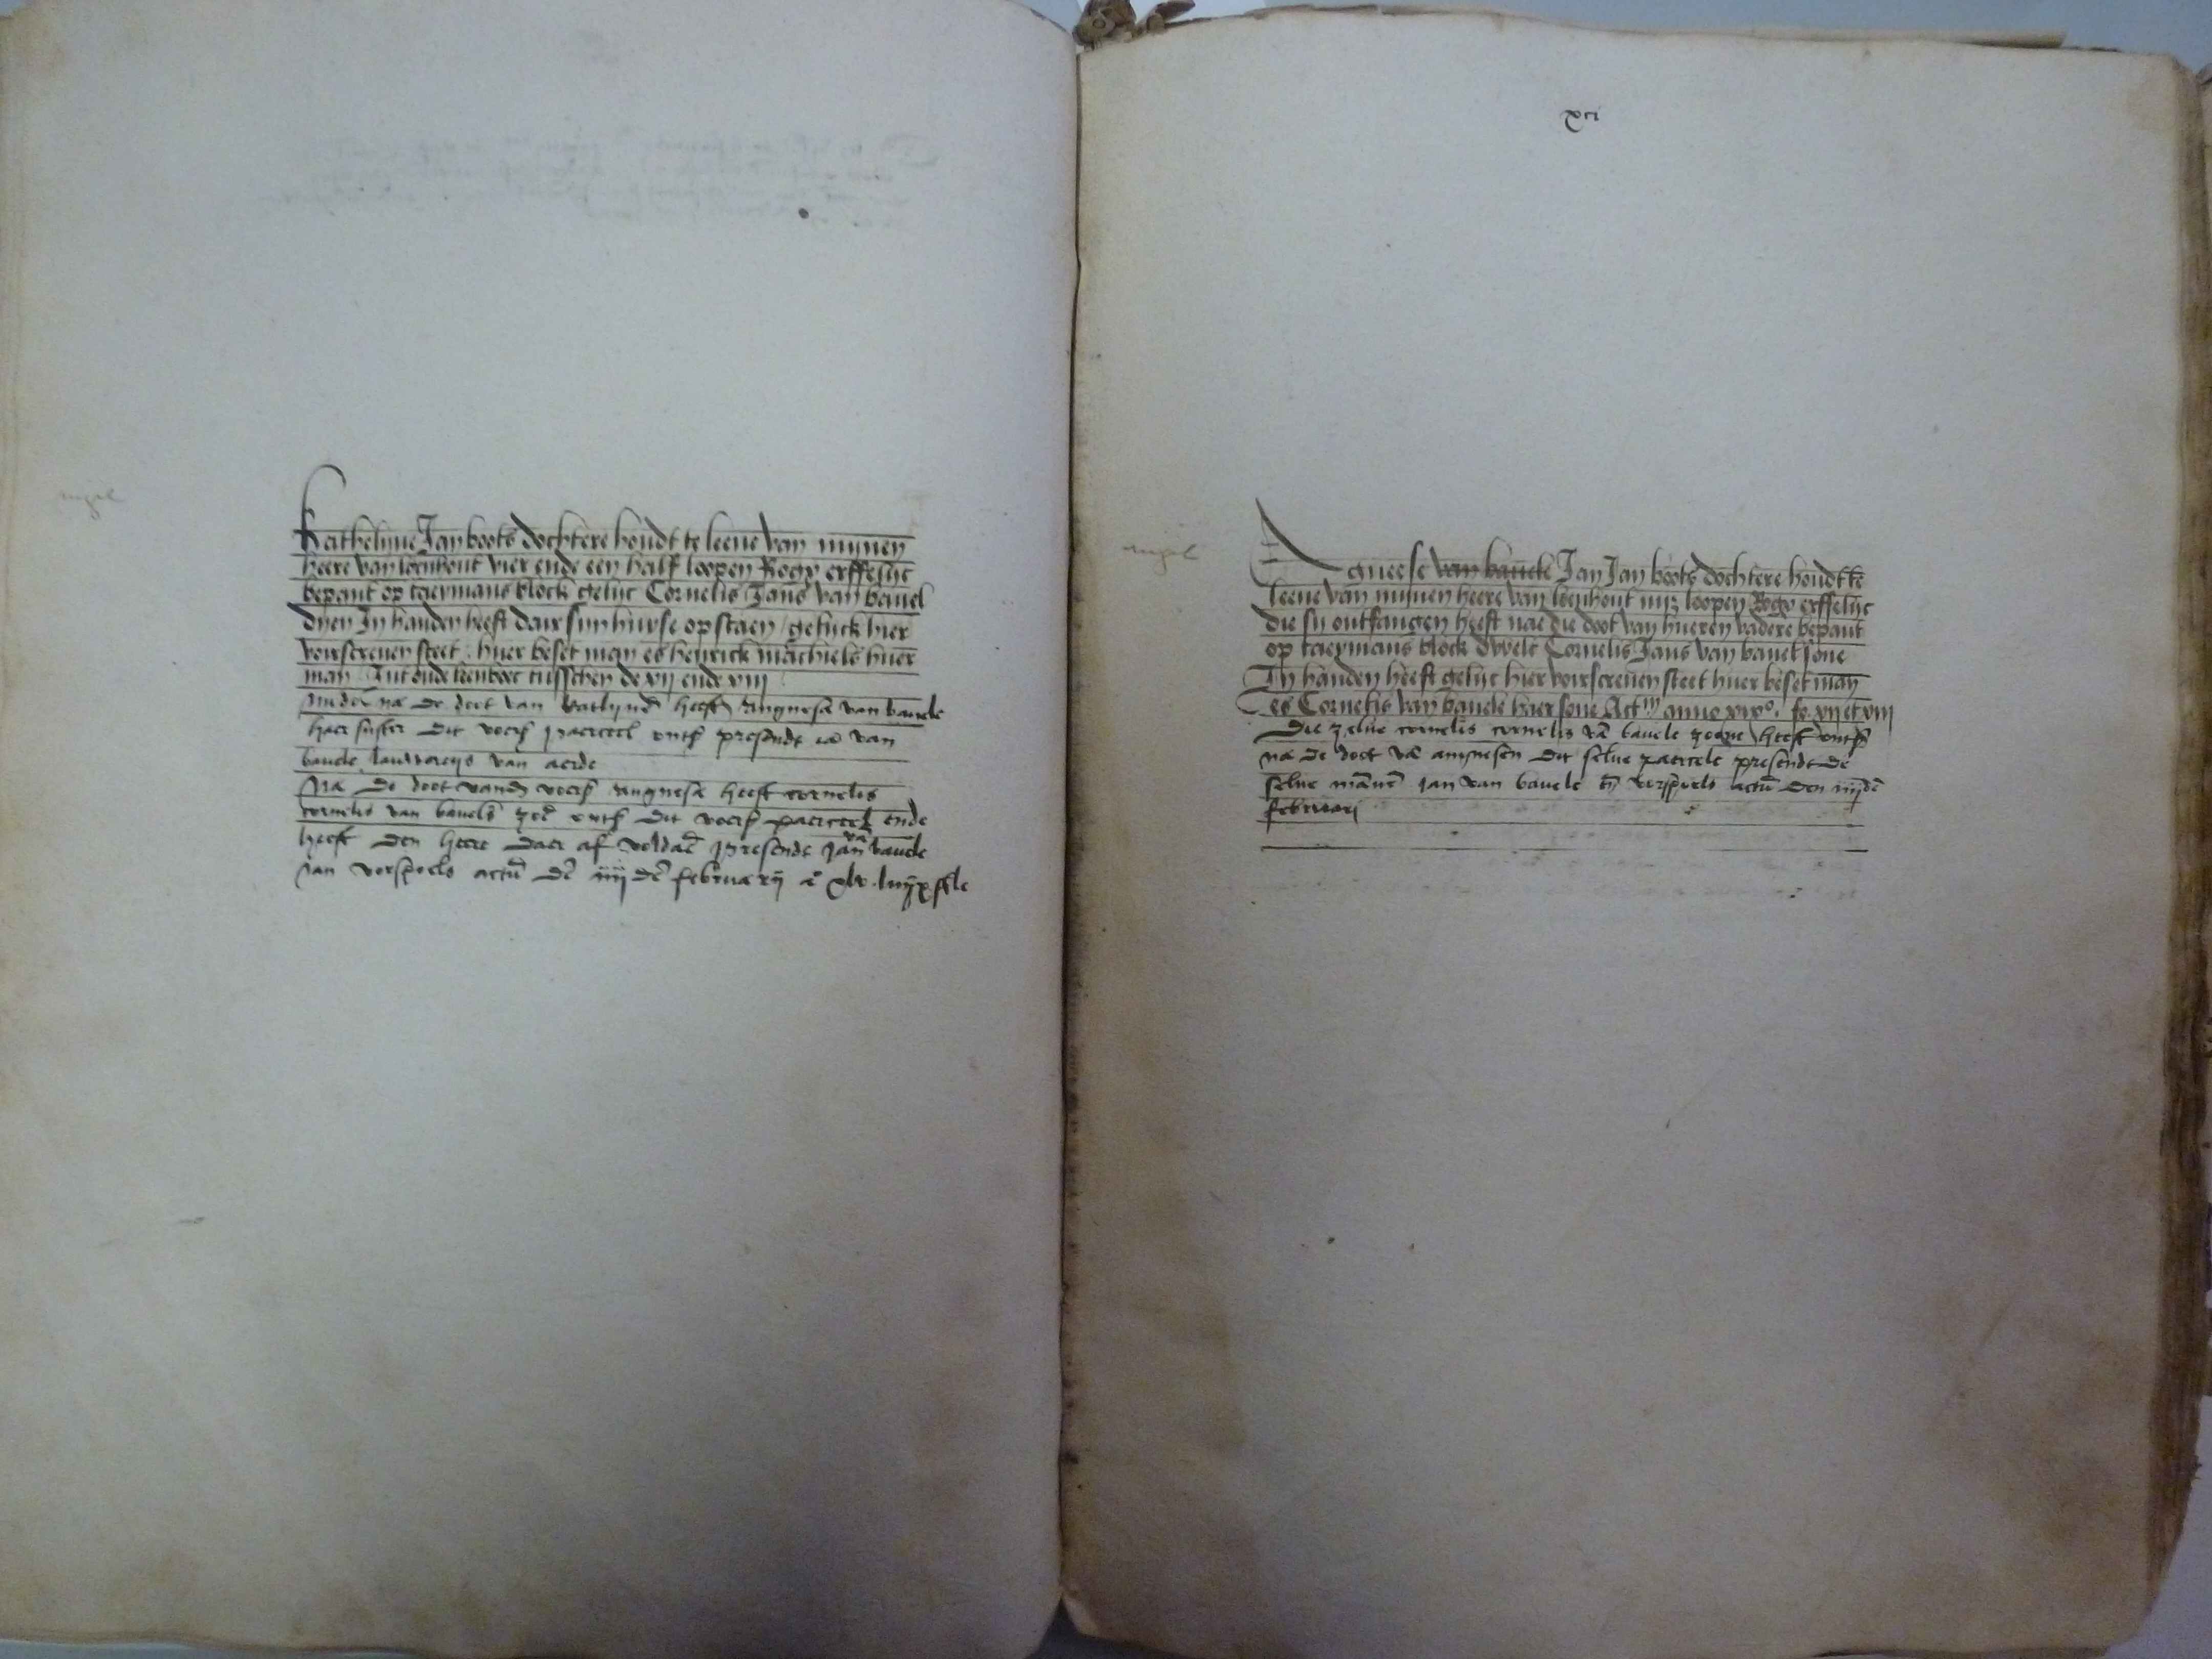 Kathelijne Jan boots dochtere houdt te leene van mijnen
heere van loenhout vier ende een half loopen Rogx erffelijc
bepant op taeymans block gelijc Cornelis Jans van bauel
dijen In handen heeft dair sijn huyse op staen / gelijck hier
voirscreuen steet . huer beset man es henrick machiels huer
man Int oude leenboec tusschen de xij ende xiij
na de doot van katlijnen heeft angnese van bauele
haer suster dit voers paerceel ontf presendt van
bauele lauwereys van aerde
Na de doot vand voers angnese heeft cornelis
cornelis van bauels zoe ontf dit voers paerceel ende
heeft den heere daer af voldaen presende jan van bauele
Jan vorspoels actum de iiij de februarij
xci
Agneese van bauele Jan Jan boots dochtere houdt te
leene van mijnen heere van loenhout loopen Rogx erffelijc
die sij ontfangen heeft nae die doot van hueren vadere bepant
op taeymans block dwelc Cornelis Jans van bauel sone
In handen heeft gelijc hier voirscreuen steet huer beset man
es Cornelis van bauele haer sone Actum anno xvo . fo xij et xiij
Die zelue cornelis cornelis va bauele zone heeft ontf
na de doot va angnesen dit selue paercele presendt de
selue mannen jan van bauele en vorspoels actum den iiijden
februari